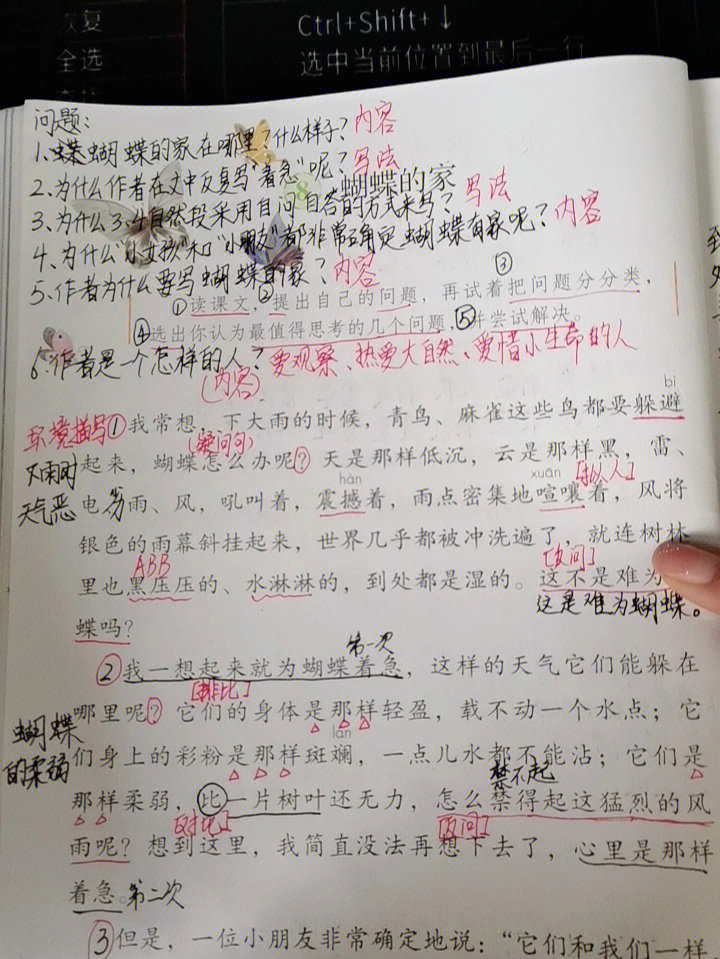 恢复
Ctrl+Shift+↓
全选
选中当前位置到最后一行
问题：
1、蝶蝴蝶的家在哪里？什么样子？内容
2、为什么作者在文中反复写“着急”呢？写法
8 蝴蝶的家
3、为什么3、4自然段采用自问自答的方式来写？写法
4、为什么“小女孩”和“小朋友”都非常确定蝴蝶有家呢？内容
5、作者为什么要写蝴蝶的家？内容
①读课文，②提出自己的问题，再试着③把问题分分类，
④选出你认为最值得思考的几个问题，⑤并尝试解决。
6、作者是一个怎样的人？爱观察、热爱大自然、爱惜小生命的人
(内容)
环境描写①我常想，下大雨的时候，青鸟、麻雀这些鸟都要躲避
bì
(疑问句)
下雨时
起来，蝴蝶怎么办呢？天是那样低沉，云是那样黑，雷、
hàn
xuān
[拟人]
天气恶劣
电、雨、风，吼叫着，震撼着，雨点密集地喧嚷着，风将
银色的雨幕斜挂起来，世界几乎都被冲洗遍了，就连树林
ABB
[反问]
里也黑压压的、水淋淋的，到处都是湿的。这不是难为
这是难为蝴蝶。
蝶吗？
第一次
②我一想起来就为蝴蝶着急，这样的天气它们能躲在
[排比]
哪里呢？它们的身体是那样轻盈，载不动一个水点；它
蝴蝶的柔弱
lán
们身上的彩粉是那样斑斓，一点儿水都不能沾；它们是
禁不起
那样柔弱，比一片树叶还无力，怎么禁得起这猛烈的风
[对比]
[反问]
雨呢？想到这里，我简直没法再想下去了，心里是那样
着急。第二次
③但是，一位小朋友非常确定地说：“它们和我们一样，